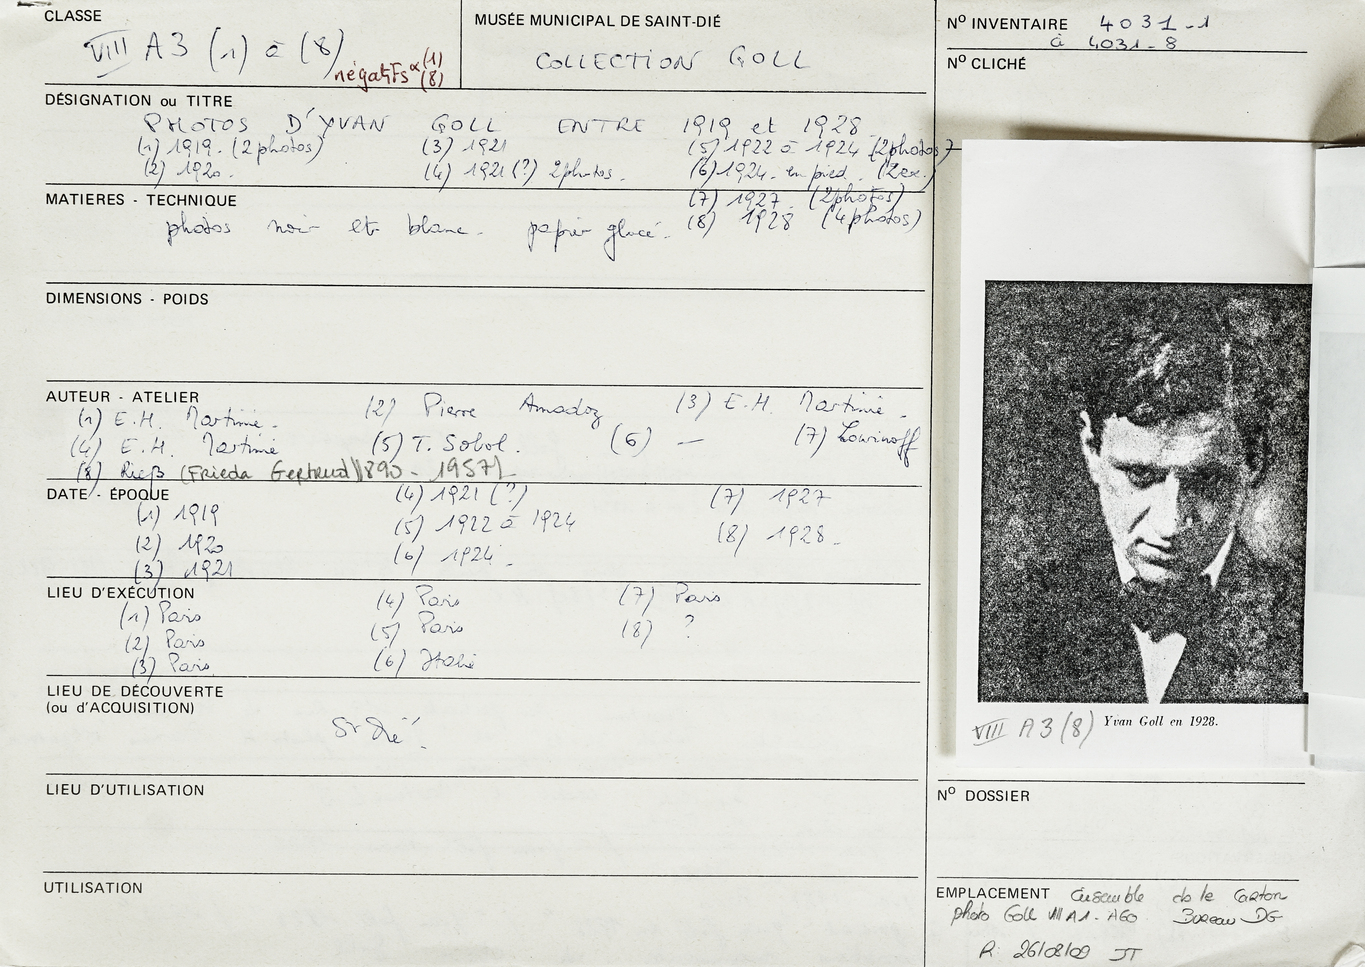 CLASSE
VIII A3 (1) à (8)
négatifs (1) (8)
MUSÉE MUNICIPAL DE SAINT-DIÉ
COLLECTION GOLL
Nº INVENTAIRE 4031-1
à 4031-8
Nº CLICHÉ
DÉSIGNATION ou TITRE
PHOTOS D'YVAN GOLL ENTRE 1919 et 1928
(1) 1919. (2 photos) (3) 1921 (5) 1922 à 1924 (2photos)
(2) 1920. (4) 1921 (?) 2photos. (6) 1924. en pied. (2ex.)
(7) 1927. (2photos)
(8) 1928 (4photos)
MATIERES - TECHNIQUE
photos noir et blanc. papier glacé.
DIMENSIONS - POIDS
AUTEUR - ATELIER
(1) E.H. Martinie. (2) Pierre Amadoz (3) E.H. Martinie.
(4) E.H. Martinie (5) T. Sobol. (6) — (7) Lowinoff
(8) Rieß (Frieda Gertrud) 1890 - 1957)
DATE - ÉPOQUE
(1) 1919 (4) 1921 (?) (7) 1927
(2) 1920 (5) 1922 à 1924 (8) 1928.
(3) 1921 (6) 1924.
LIEU D'EXÉCUTION
(1) Paris (4) Paris (7) Paris
(2) Paris (5) Paris (8) ?
(3) Paris (6) Italie
LIEU DE DÉCOUVERTE
(ou d'ACQUISITION)
St Dié.
LIEU D'UTILISATION
UTILISATION
VIII A3 (8) Yvan Goll en 1928.
Nº DOSSIER
EMPLACEMENT Ensemble ds le carton
photo Goll VIII A1 - A60 Bureau DG
R. 26/08/09 JT